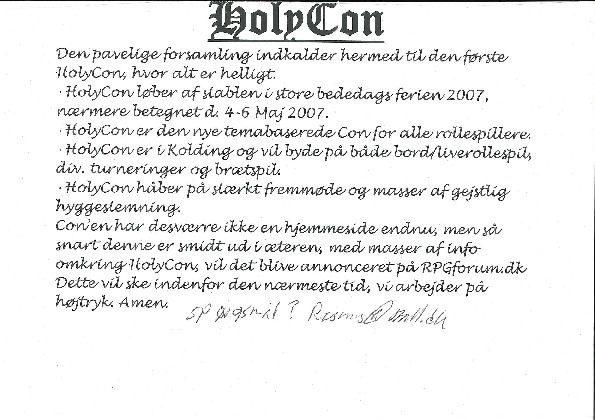 HolyCon
Den pavelige forsamling indkalder hermed til den første
HolyCon, hvor alt er helligt.
· HolyCon løber af stablen i store bededags ferien 2007,
nærmere betegnet d. 4-6 Maj 2007.
· HolyCon er den nye temabaserede Con for alle rollespillere.
· HolyCon er i Kolding og vil byde på både bord/liverollespil,
div. turneringer og brætspil.
· HolyCon håber på stærkt fremmøde og masser af gejstlig
hyggestemning.
Con'en har desværre ikke en hjemmeside endnu, men så
snart denne er smidt ud i æteren, med masser af info
omkring HolyCon, vil det blive annonceret på RPGforum.dk
Dette vil ske indenfor den nærmeste tid, vi arbejder på
højtryk. Amen.
spørgsmål?